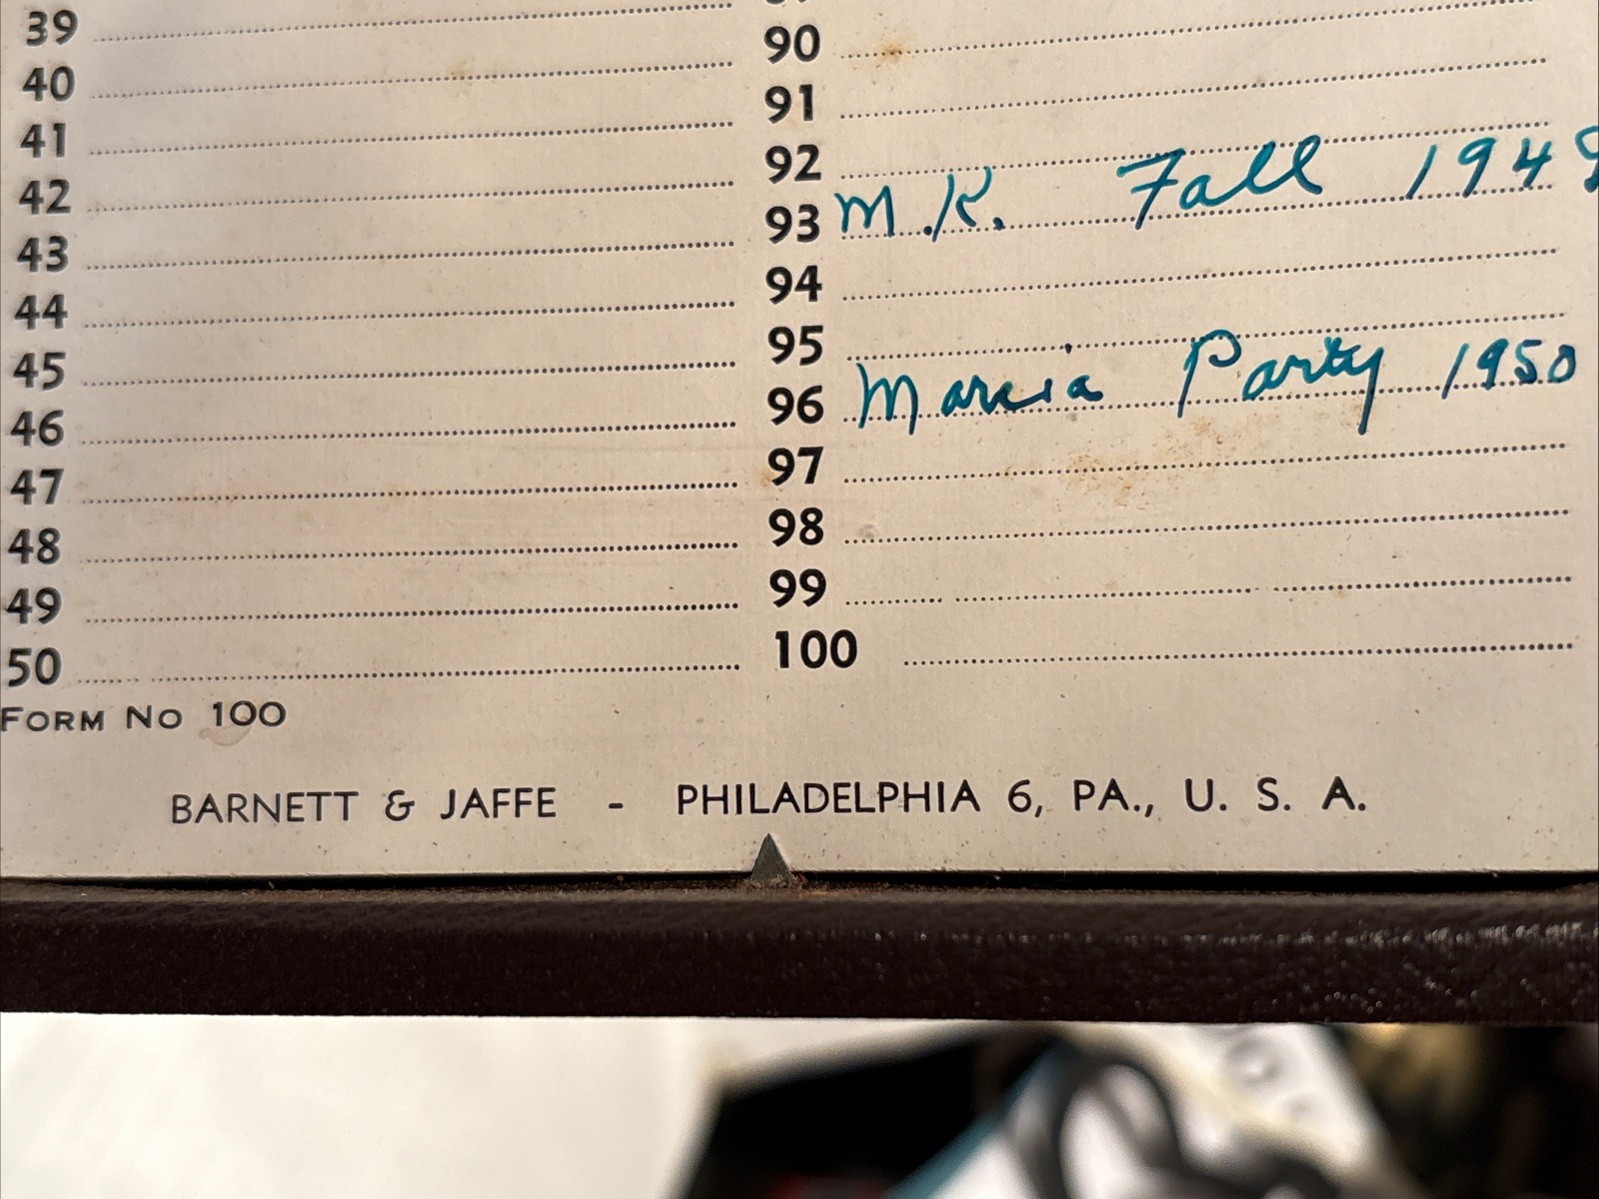 39
40
41
42
43
44
45
46
47
48
49
50
FORM NO 100
90
91
92
93 M.K. Fall 194
94
95
96 Marcia Party 1950
97
98
99
100
BARNETT & JAFFE - PHILADELPHIA 6, PA., U. S. A.